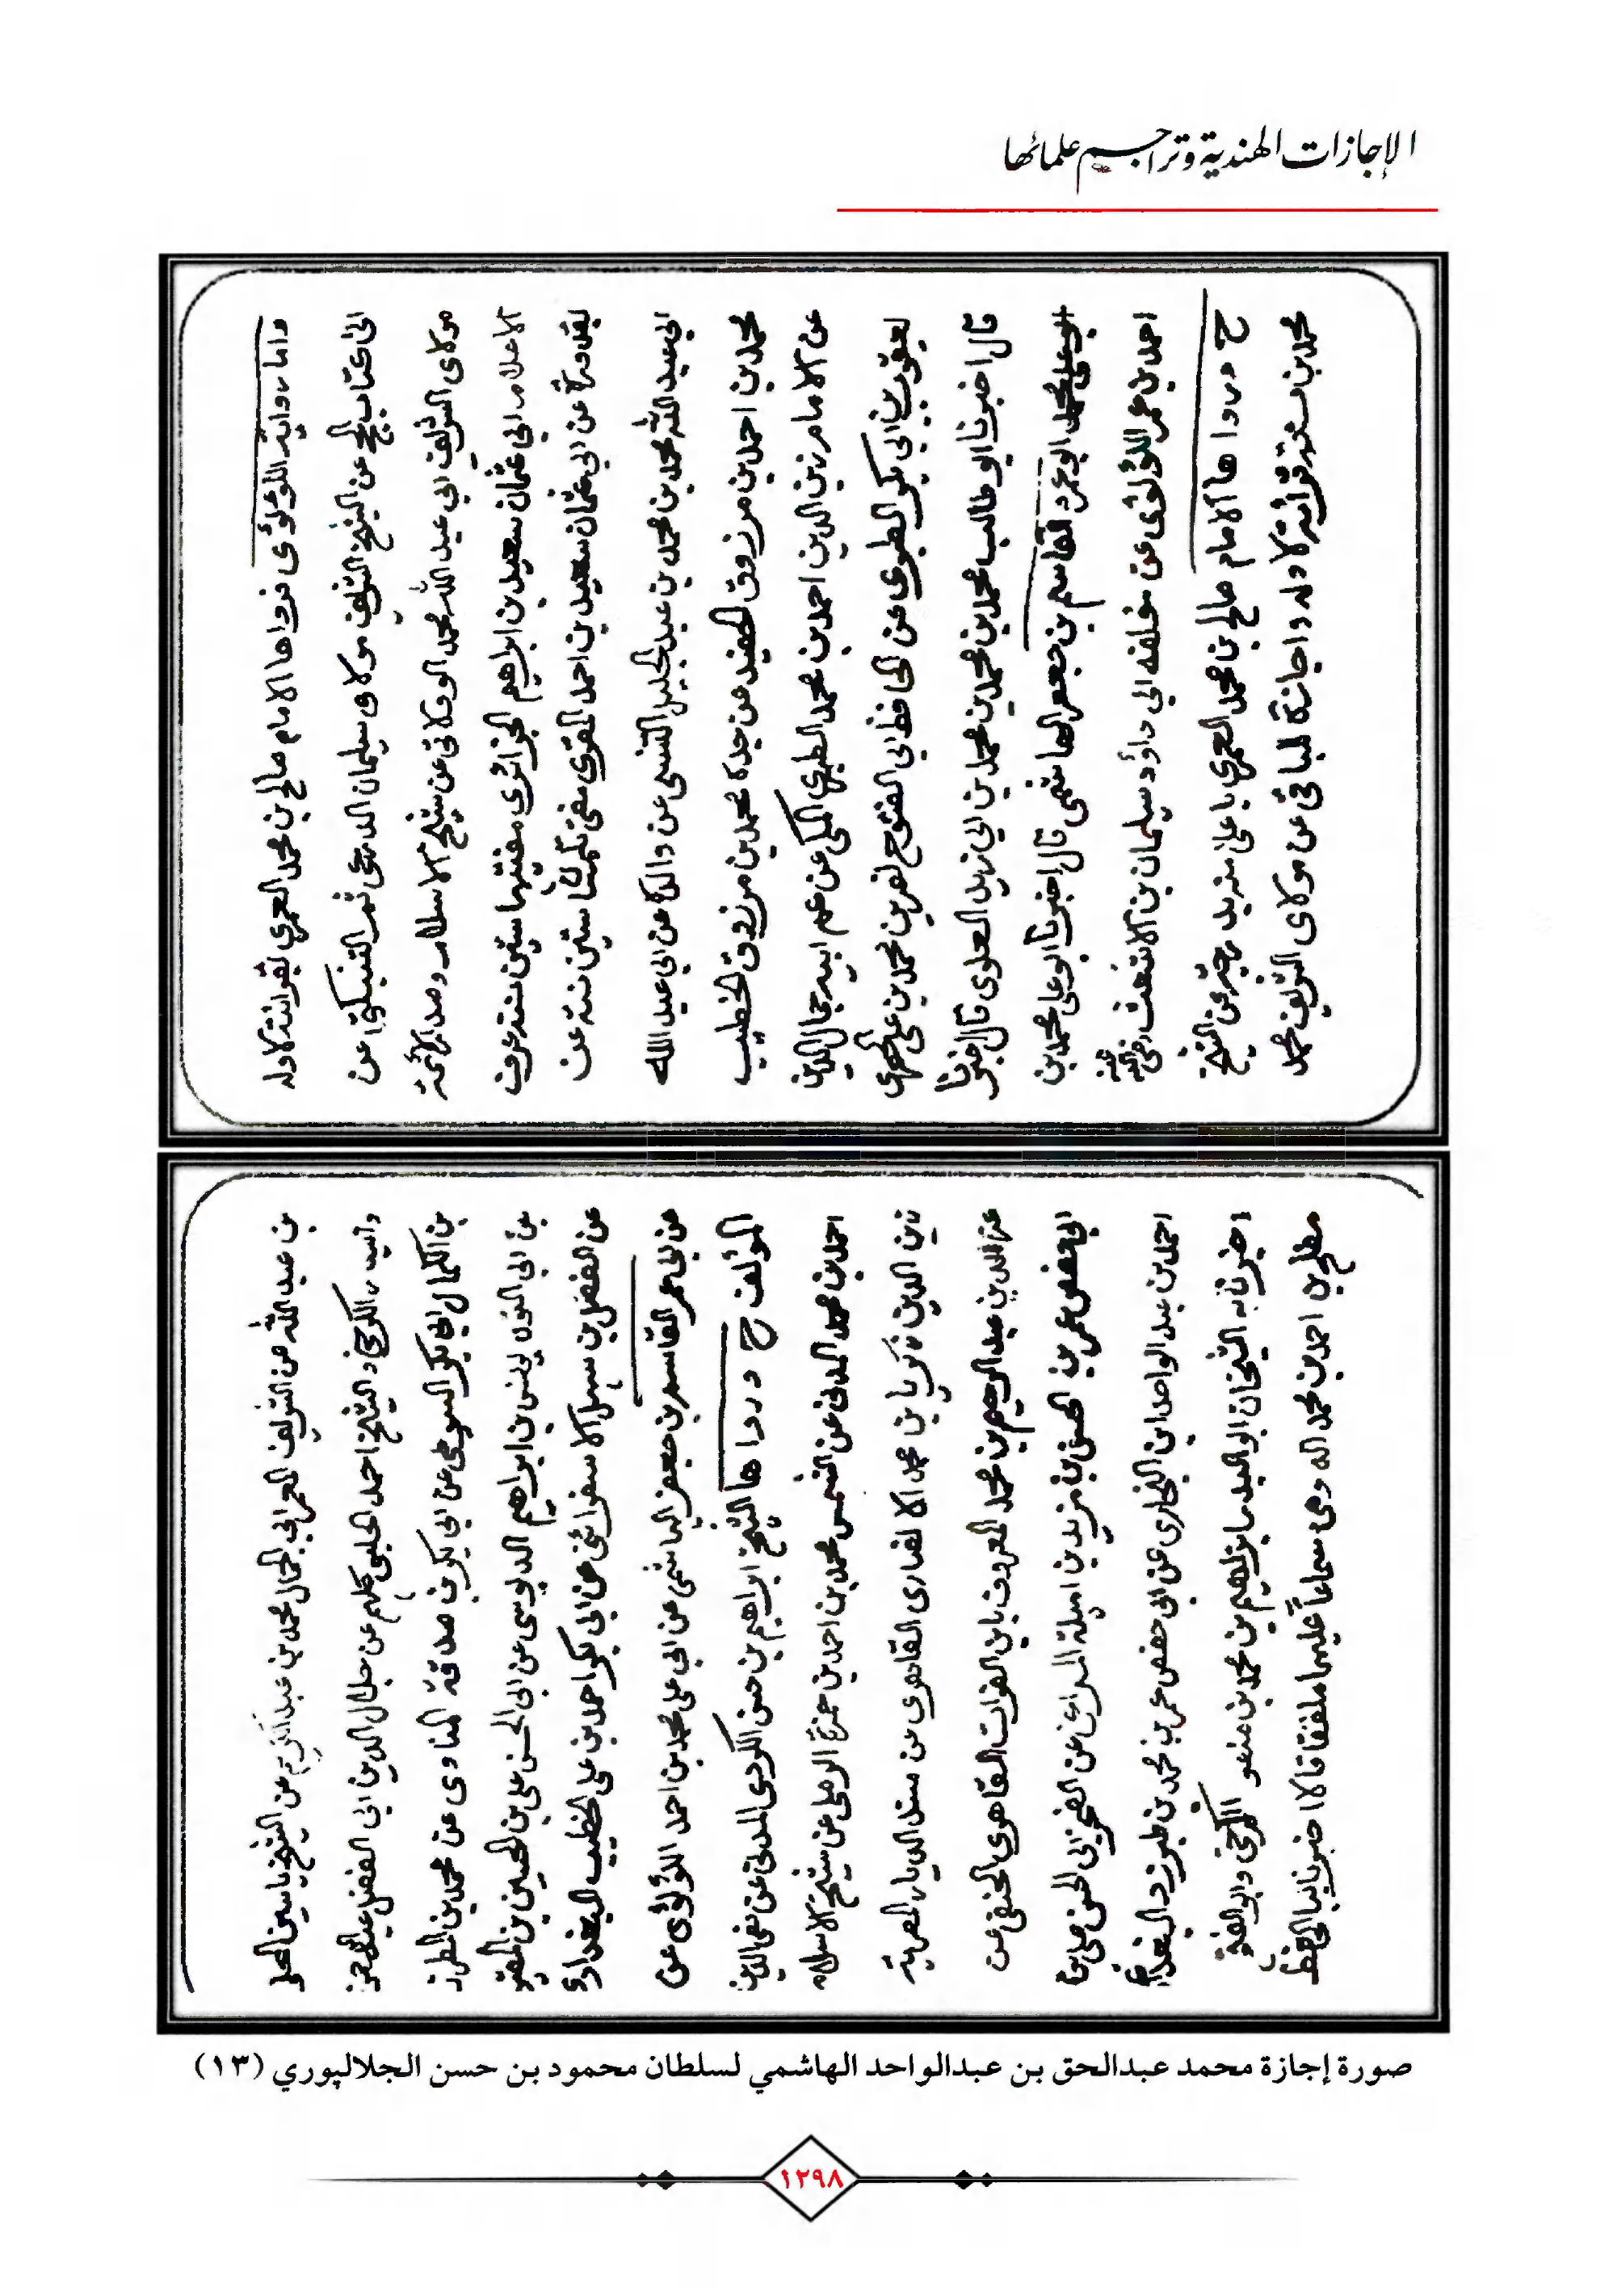 الإجازات الهندية وتراجم علمائها
واما رواية اللؤلؤى فرواها الامام صالح بن محمد العمرى بقرائته لاوله
الى عن الشيخ الشريف مولاى سليمان الدرعى ثم التنبكتو عن
مولاى الشريف ابي عبد الله محمد الولاتى عن شيخ الاسلام وصدر الائمة
الاعلام ابي عثمان سعيد بن ابراهيم الجزائرى مفتيها ستين سنة عرف
بقدورة عن ابي عثمان سعيد بن احمد المقرى مفتى تلمسان ستين سنة عن
ابي عبد الله محمد بن محمد بن عبد الجليل التنسى عن والده عن ابي عبد الله
محمد بن احمد بن مرزوق الحفيد عن جده محمد بن مرزوق الخطيب
عن الامام زين الدين احمد بن محمد الطبرى المكى عن عم ابيه جمال الدين
يعقوب بن ابي بكر الطبرى عن الحافظ ابي الفتوح نصر بن محمد بن على الحصرى
قال اخبرنا ابو طالب محمد بن محمد بن محمد بن ابي زيد العلوى قال اخبرنا
ابو على محمد ابو عمر القاسم بن جعفر الهاشمى قال اخبرنا ابو على محمد بن
احمد بن عمر اللؤلؤى عن مؤلفه ابي داؤد سليمان بن الاشعث رضى الله عنه
ح ورواها الامام صالح بن محمد العمرى باعلى منه بدرجة عن الشيخ
محمد بن سنة قرائة لاوله واجازة لباقى عن مولاى الشريف محمد
بن عبد الله عن الشريف المعمر ابي الجمال محمد بن عبد الكريم عن الشيخ ياسين المحلى
والشيخ احمد الحلبى كلهم عن جلال الدين ابي الفضل عبد الرحمن
بن الكمال ابي بكر السيوطى عن ابي بكر بن صدقة المناوى عن محمد بن المطرز
عن ابي النون يونس بن ابراهيم الدبوسى عن ابي الحسن على بن الحسين بن المقير
عن الفضل بن سهل الاسفرائنى عن ابي بكر احمد بن على الخطيب البغدادى
عن ابي عمر القاسم بن جعفر الهاشمى عن ابي على محمد بن احمد اللؤلؤى عن
المؤلف ح ورواها الشيخ ابراهيم بن حسن الكردى المدنى عن صفى الدين
احمد بن محمد المدنى عن الشمس محمد بن احمد بن حمزة الرملى عن شيخ الاسلام
زين الدين زكريا بن محمد الانصارى القاهرى عن مسند الديار المصرية
عز الدين عبد الرحيم بن محمد المعروف بابن الفرات القاهرى الحنفى عن
ابي حفص عمر بن الحسن بن مزيد بن اميلة المراغى عن الفخر ابي الحسن على بن
احمد بن عبد الواحد ابن البخارى عن ابي حفص عمر بن محمد بن طبرزد البغدادى
اخبرنا به الشيخان ابو البدر ابراهيم بن محمد بن منصور الكرخى وابو الفتح
مفلح بن احمد بن محمد الدومى سماعا عليهما ملفقا قالا اخبرنا به الحافظ
صورة إجازة محمد عبدالحق بن عبدالواحد الهاشمي لسلطان محمود بن حسن الجلالپوري (١٣)
١٢٩٨